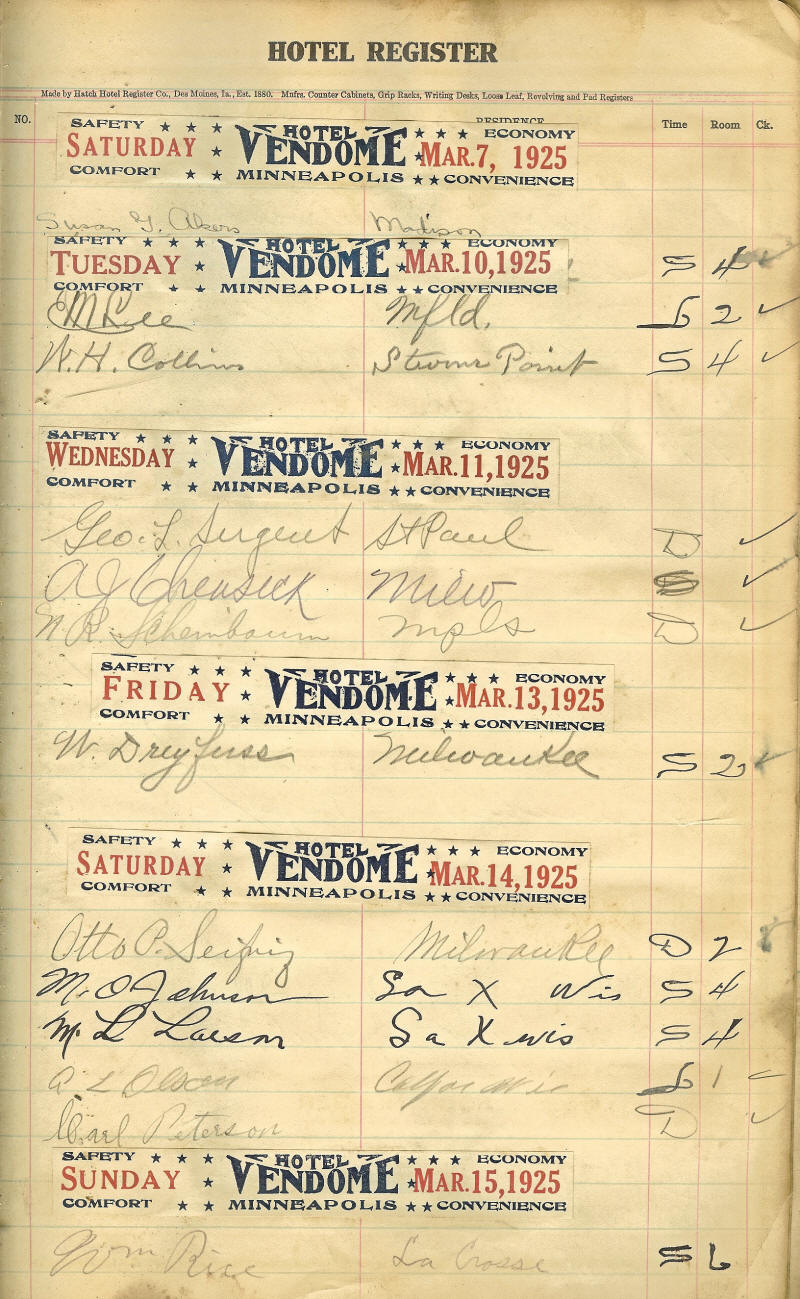 HOTEL REGISTER
Made by Hatch Hotel Register Co., Des Moines, Ia., Est. 1880. Mnfrs. Counter Cabinets, Grip Racks, Writing Desks, Loose Leaf, Revolving and Pad Registers
NO. RESIDENCE Time Room Ck.
SAFETY HOTEL ECONOMY
SATURDAY VENDOME MAR. 7, 1925
COMFORT MINNEAPOLIS CONVENIENCE
Susan G. Akers Madison
SAFETY HOTEL ECONOMY
TUESDAY VENDOME MAR. 10, 1925 S 4
COMFORT MINNEAPOLIS CONVENIENCE
EM Lee Mfld. 2
W. H. Collins Point S 4
SAFETY HOTEL ECONOMY
WEDNESDAY VENDOME MAR. 11, 1925
COMFORT MINNEAPOLIS CONVENIENCE
Geo. L. Sergent St Paul D
A J Milw
Scheinbaum mpls D
SAFETY HOTEL ECONOMY
FRIDAY VENDOME MAR. 13, 1925
COMFORT MINNEAPOLIS CONVENIENCE
W. Dreyfuss Milwaukee S 2
SAFETY HOTEL ECONOMY
SATURDAY VENDOME MAR. 14, 1925
COMFORT MINNEAPOLIS CONVENIENCE
Otto P. Milwaukee D 2
M. O Johnson La X Wis S 4
M. L Larson La X wis S 4
A L Olson 1
Carl Peterson D
SAFETY HOTEL ECONOMY
SUNDAY VENDOME MAR. 15, 1925
COMFORT MINNEAPOLIS CONVENIENCE
Wm Rice La Crosse S 6